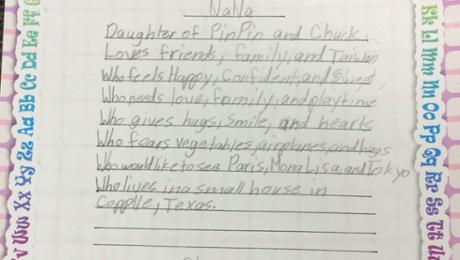 NaNa
Daughter of PinPin and Chuck.
Loves friends, family, and Taiwan
Who feels Happy, Confident, and Sweet
Who needs love, family, and playtime
Who gives hugs, smile, and hearts
Who fears vegetables, airplanes, and bugs
Who would like to see Paris, Mona Lisa, and Tokyo
Who lives in a small house in
Copplle, Texas.
Kk Ll Mm Nn Oo Pp Qq Rr Ss Tt Uu
Vv Ww Xx Yy Zz Aa Bb Cc Dd Ee Ff